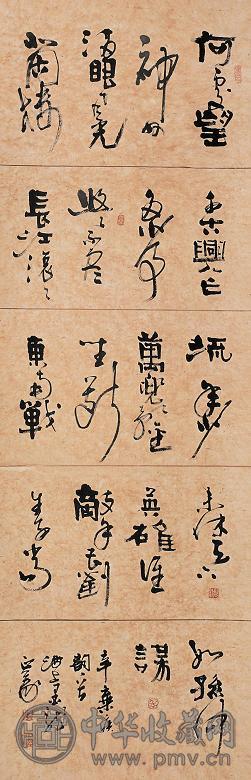 何處望
神州
滿眼風光
北固樓
千古興亡
多少事
悠悠不盡
長江滾滾
流年少
萬兜鍪
坐斷
東南戰
未休天下
英雄誰
敵手曹劉
生子當
如孫仲
謀
辛棄疾
詞
中华收藏网
www.pmv.cn